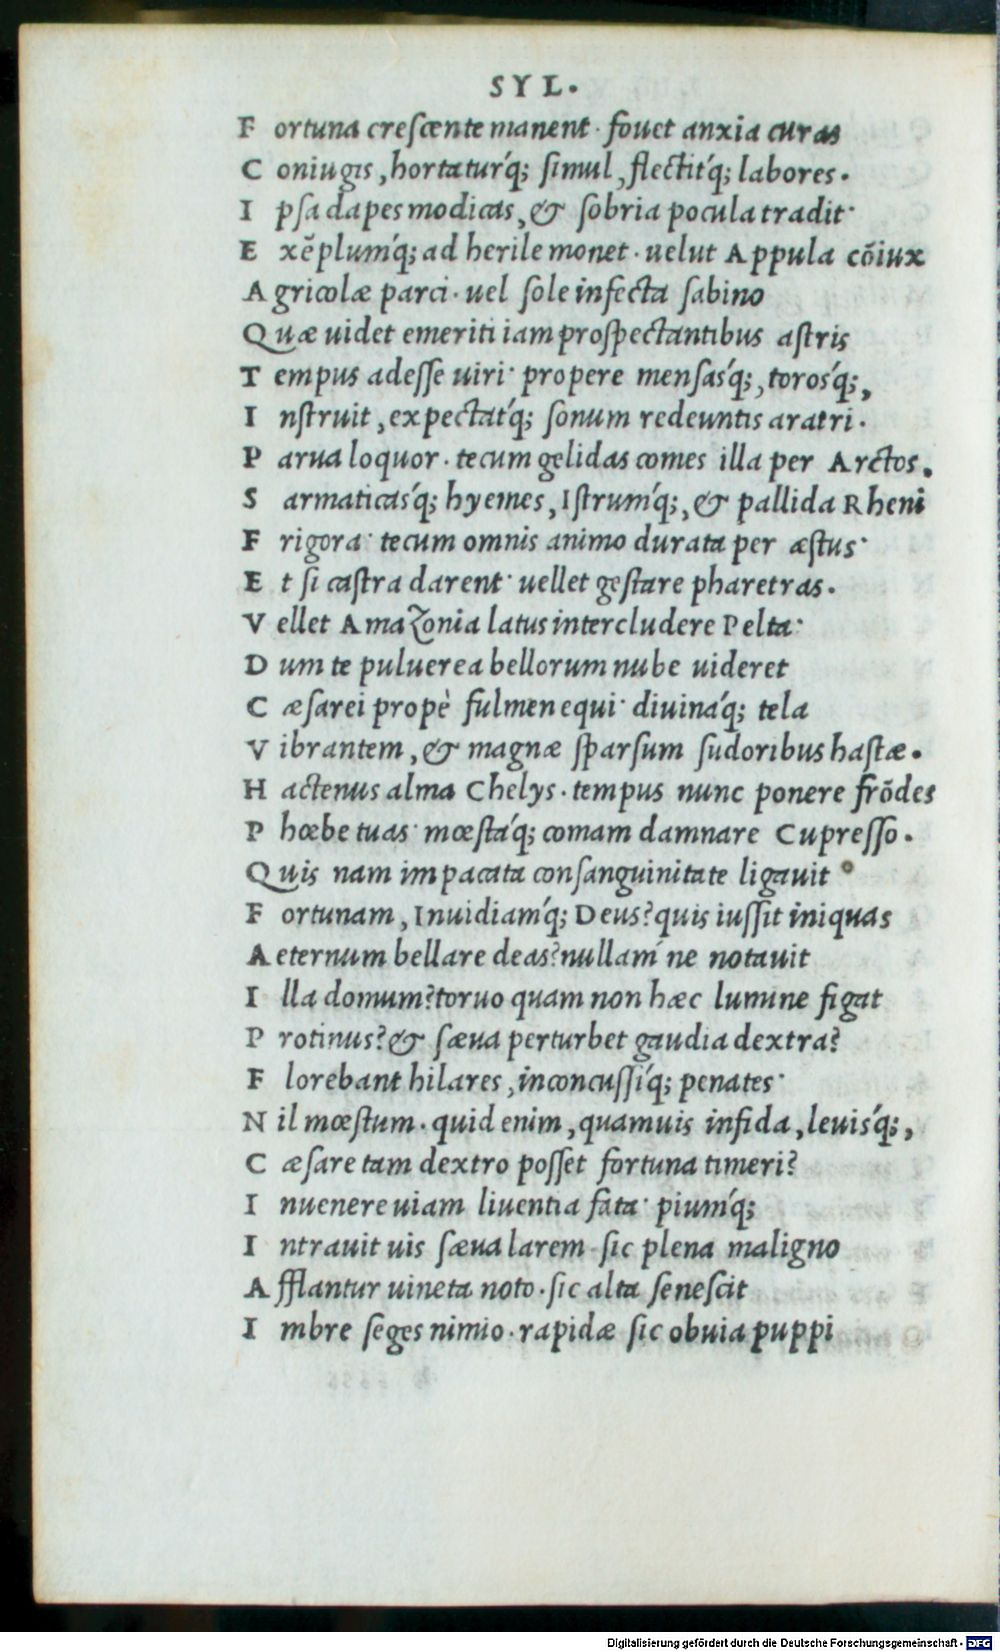 SYL.
F ortuna crescente manent· fouet anxia curas
C oniugis, hortatur'q; simul, flectit'q; labores.
I psa dapes modicas, & sobria pocula tradit·
E xẽplum'q; ad herile monet. uelut Appula cõiux
A gricolæ parci. uel sole infecta sabino
Q uæ uidet emeriti iam prospectantibus astris
T empus adesse uiri· propere mensas'q;, toros'q;,
I nstruit, expectat'q; sonum redeuntis aratri.
P arua loquor. tecum gelidas comes illa per Arctos,
S armaticas'q; hyemes, Istrum'q;, & pallida Rheni
F rigora· tecum omnis animo durata per æstus·
E t si castra darent· uellet gestare pharetras.
V ellet Amazonia latus intercludere Pelta·
D um te puluerea bellorum nube uideret
C æsarei propè fulmen equi· diuina'q; tela
V ibrantem, & magnæ sparsum sudoribus hastæ.
H actenus alma Chelys. tempus nunc ponere frõdes
P hœbe tuas· mœsta'q; comam damnare Cupresso.
Q uis nam impacata consanguinitate ligauit
F ortunam, Inuidiam'q; Deus? quis iussit iniquas
A eternum bellare deas? nullam ́ne notauit
I lla domum? toruo quam non hæc lumine figat
P rotinus? & sæua perturbet gaudia dextra?
F lorebant hilares, inconcussi'q; penates·
N il mœstum. quid enim, quamuis infida, leuis'q;,
C æsare tam dextro posset fortuna timeri?
I nuenere uiam liuentia fata· pium'q;
I ntrauit uis sæua larem· sic plena maligno
A fflantur uineta noto. sic alta senescit
I mbre seges nimio. rapidæ sic obuia puppi
Digitalisierung gefördert durch die Deutsche Forschungsgemeinschaft - DFG